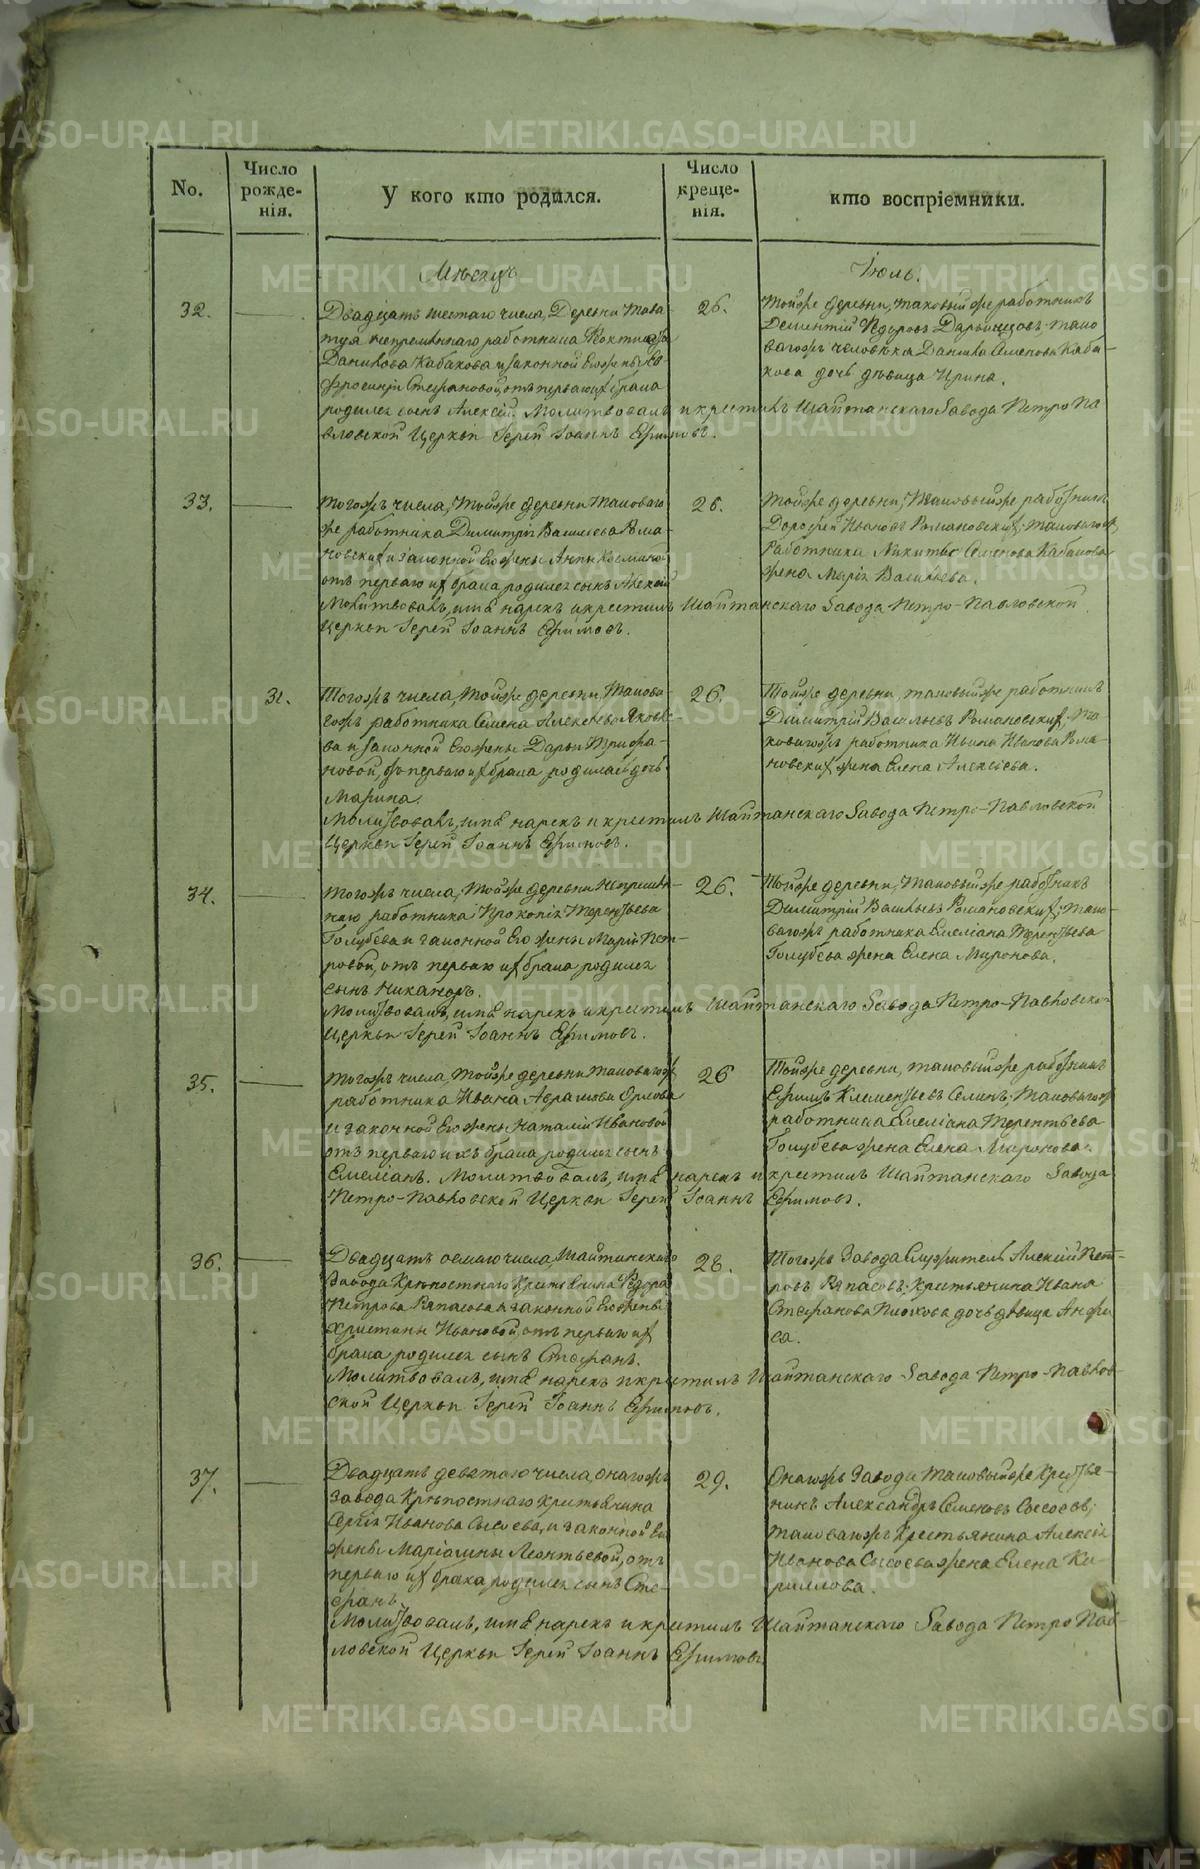 No.
Число рожде- нія.
У кого кто родился.
Число креще- нія.
кто воспріемники.
Мѣсяцъ
Іюль.
32.
Двадцать шестаго числа, Деревни Тава-
туя непремѣннаго работника
Данилова Кабакова и законной Его жены
Стефановой, отъ перваго их брака
родился сынъ Алексѣй. Молитвовалъ и крестилъ Шайтанскаго Завода Петро Па-
вловской Церкви Іерей Іоаннъ Ефимовъ.
26.
Тойже деревни, таковый же работникъ
Дементій Ѳедоровъ тако-
вагожъ человѣка Данила Семенова Каба-
кова дочь дѣвица Ирина.
33.
Тогожъ числа, Тойже деревни Таковаго
же работника Димитрія Васильева Рома-
новских и законной Его жены Анны
отъ перваго их брака родился сынъ Алексѣй
Молитвовалъ, имѣ нарекъ и крестилъ Шайтанскаго Завода Петро-Павловской
Церкви Іерей Іоаннъ Ефимовъ.
26.
Тойже деревни, Таковый же работникъ
Дорофей Ивановъ Романовских, таковагож
Работника Никиты Семенова Кабакова
жена Марія Васильева.
31.
Тогожъ числа, Тойже деревни, Такова-
гожъ работника Семена Алексѣева Яковле-
ва и законной Его жены Дарьи Трифа-
новой, от перваго их брака родилась дочь
Марина.
Молитвовалъ, имѣ нарекъ и крестилъ Шайтанскаго Завода Петро-Павловской
Церкви Іерей Іоаннъ Ефимовъ.
26.
Тойже деревни, таковый же работникъ
Димитрій Васильевъ Романовских, Та-
ковагожъ работника Ивана Иванова Рома-
новских жена Елена Алексѣева.
34.
Тогожъ числа, Тойже деревни Непремѣн-
наго работника Прокопія Терентьева
Голубева и законной Его жены Маріи Пет-
ровой, отъ перваго их брака родился
сынъ Никаноръ.
Молитвовалъ, имѣ нарекъ и крестилъ Шайтанскаго Завода Петро-Павловской
Церкви Іерей Іоаннъ Ефимовъ.
26.
Тойже деревни, Таковый же работникъ
Димитрій Васильевъ Романовских; тако-
вагожъ работника Емеліана Терентьева
Голубева жена Елена Миронова.
35.
Тогожъ числа, Тойже деревни таковагож
работника Ивана Аврамова Орлова
и законной Его жены Наталіи Ивановой
отъ перваго ихъ брака родился сынъ
Емеліанъ. Молитвовалъ, имѣ нарекъ и крестилъ Шайтанскаго Завода
Петро-Павловской Церкви Іерей Іоаннъ Ефимовъ.
26
Тойже деревни, таковый же работникъ
Ефимъ Клементьевъ Селинъ; Таковагож
работника Емеліана Терентьева
Голубева жена Елена Миронова.
36.
Двадцать осмаго числа, Шайтанскаго
Завода Крѣпостнаго Крестьянина Ѳедора
Петрова Ряпасова и законной Его жены
Христины Ивановой, отъ перваго их
брака родился сынъ Стефанъ.
Молитвовалъ, имѣ нарекъ и крестилъ Шайтанскаго Завода Петро-Павлов-
ской Церкви Іерей Іоаннъ Ефимовъ.
28.
Тогожъ Завода Служитель Алексій Пет-
ровъ Ряпасовъ; Крестьянина Ивана
Стефанова Плохова дочь дѣвица Анфи-
са.
37.
Двадцать девятаго числа, Онагожъ
Завода Крѣпостнаго крестьянина
Сергія Иванова Сысоева, и законной Его
жены Маріамны Леонтьевой, отъ
перваго их брака родился сынъ Сте-
фанъ.
Молитвовалъ, имѣ нарекъ и крестилъ Шайтанскаго Завода Петро Пав-
ловской Церкви Іерей Іоаннъ Ефимовъ.
29.
Онагожъ Завода Таковый же Крестья-
нинъ Александръ Семеновъ Сысоевъ;
таковагожъ Крестьянина Алексія
Иванова Сысоева жена Елена Ки-
риллова.
METRIKI.GASO-URAL.RU